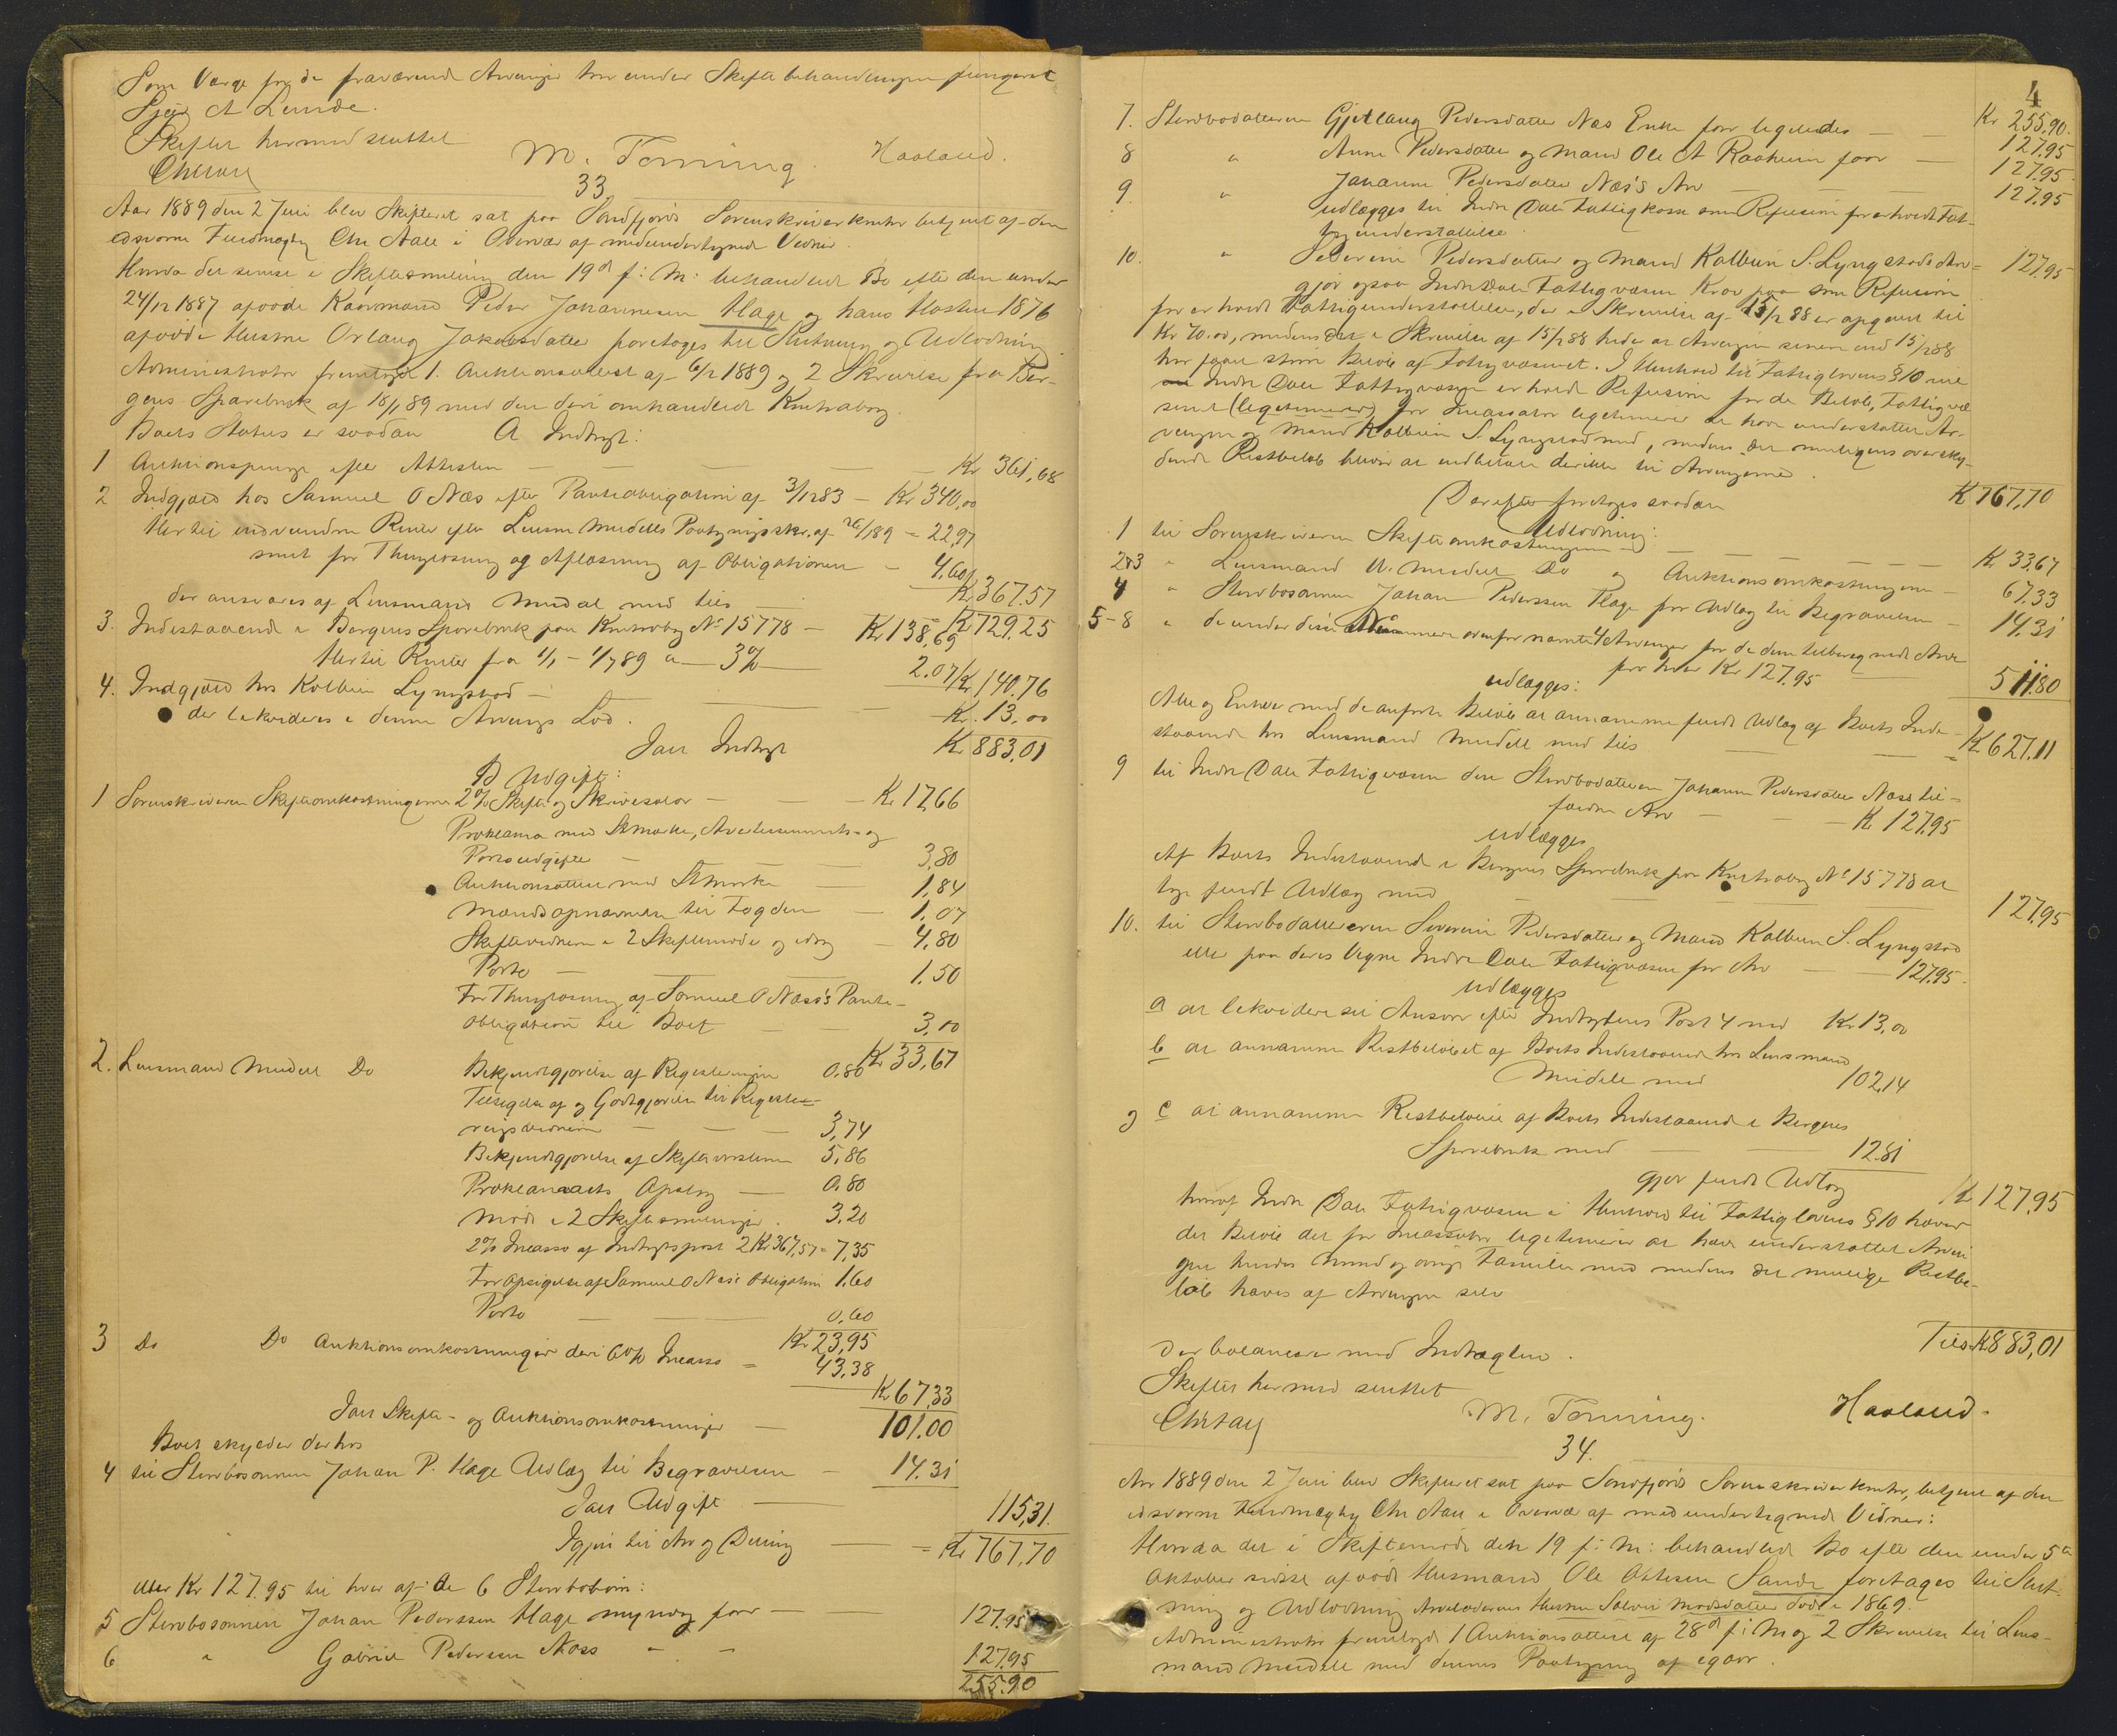 Som Værge for de fraværende Arvinger har under Skiftebehandlingen fungeret
A Lunde.
Skiftet hermed sluttet
M. Tonning. Haaland.
33
Aar 1889 den 2 Juni blev Skifteret sat paa Søndfjords Sorenskriverkontor betjent af den
edsvorne Fuldmægtig Chr Aall i Overvær af medundertegnede Vidner.
Hvorda det senest i Skiftesamling den 19de f: M: behandlede Bo efter den under
24/12 1887 afdøde Kaarmand Peder Johannesen Hage og hans Høsten 1876
afdøde Hustru Orlaug Jakobsdatter foretoges til Slutning og Udlodning.
Administrator fremlagde 1. Auktionsattest af 6/2 1889 og 2 Skrivelse fra Ber-
gens Sparebank af 18/1 89 med den deri omhandlede Kontrabog.
Boets Status er saadan A Indtægt:
1 Auktionspenge efter Attesten — Kr 361,68
2 Indgjæld hos Samuel O Næs efter Panteobligation af 3/12 83 — Kr 340,00
Hertil indvundne Renter efter Lensm Meidells Paategningsskr. af 26/1 89 = 22,97
samt for Thinglæsning og Aflæsning af Obligationen — 4,60
Kr 367.57
der ansvares af Lensmand Meidell med tils — Kr 729.25
3. Indestaaende i Bergens Sparebank paa Kontrabog No 15778 — Kr 138,69
Hertil Renter fra 1/1 – 1/7 89 a 3% 2.07 Kr 140.76
4. Indgjæld hos Kolbein Lyngstad — Kr. 13,00
der likvideres i denne Arvings Lod.
Ialt Indtægt Kr 883,01
B Udgift:
1 Sorenskriveren Skifteomkostningerne 2% Skifte og Skrivesalær — Kr 17,66
Proklama med St.mærke, Avertissements- og
Portoudgifter — 3,80
Auktionsattest med St.mærke 1,84
Mændsopnævnelse til Fogden — 1,07
Skiftevidnerne i 2 Skiftemøder og idag — 4,80
Porto — 1.50
For Thinglæsning af Samuel O Næs's Pante-
obligation til Boet 3,00
Kr 33,67
2. Lensmand Meidell Do Bekjendtgjørelse af Registreringen 0.80
Tilsigelse af og Godtgjørelse til Registre-
ringsvidnerne — 3,74
Bekjendtgjørelse af Skiftesamlinger 5,86
Proklamaets Opslag — 0.80
Møde i 2 Skiftesamlinger. 3,20
2% Incasso af Indtægtspost 2 Kr 367,57 = 7,35
For Opsigelse af Samuel O Næs's Obligation 1,60
Porto 0,60
Kr 23,95
3 Do Do Auktionsomkostninger deri 6% Incasso = 43,38
Kr 67,33
Ialt Skifte- og Auktionsomkostninger — 101.00
Boet skylder derhos
4 til Stervbosønnen Johan P. Hage Udlæg til Begravelsen — 14.31
Ialt Udgift — 115,31.
Igjen til Arv og Deling — = Kr 767,70
eller Kr 127.95 til hver af de 6 Stervbobørn:
5 Stervbosønnen Johan Pederssen Hage myndig faar — 127.95
6 " Gabriel Pederssen Næss " — 127.95
255.90
4
7. Stervbodatteren Gjetlaug Pedersdatter Næs Enke faar ligeledes — Kr 255,90.
127.95
8 " Anne Pedersdatter og Mand Ole A Raaheim faar — 127.95
9 " Johanne Pedersdatter Næs's Arv — 127.95
udlægges til Indre Dale Fattigkasse som Refusion for erholdt Fat-
tigunderstøttelse.
10. " Severine Pedersdatter og Mand Kolbein S. Lyngstads Arv = 127,95
gjør ogsaa Indre Dale Fattigvæsen Krav paa som Refusion
for erholdt Fattigunderstøttelse, der i Skrivelse af 15/2 88 er opgivet til
Kr 70.00, medens det i Skrivelse af 15/2 88 heder at Arvingen senere end 15/2 88
har faaet større Beløb af Fattigvæsenet. I Henhold til Fattiglovens § 10 vil
Indre Dale Fattigvæsen erholde Refusion for de Beløb, Fattigvæ-
senet (legetimerer) for Incassator legetimerer at have understøttet Ar-
vingen og Mand Kolbein S. Lyngstad med, medens det muligens oversky-
dende Restbeløb bliver at udbetale derikke til Arvingerne.
Kr 767,70
Derefter foretoges saadan
Udlodning:
1 til Sorenskriveren Skifteomkostningerne — Kr 33,67
2&3 " Lensmand Meidell Do og Auktionsomkostningerne — 67.33
4 " Stervbosønnen Johan Pederssen Hage for Udlæg til Begravelsen — 14,31
5-8 " de under disse Nummere ovenfor nævnte 4 Arvinger for de dem tilberegnede Arve
for hver Kr 127.95 511.80
udlægges:
Alle og Enhver med de anførte Beløb at annamme fuldt Udlæg af Boets Inde-
staaende hos Lensmand Meidell med tils — = Kr 627.11
9 til Indre Dale Fattigvæsen den Stervbodatteren Johanne Pedersdatter Næss til-
faldne Arv — Kr 127.95
udlægges
Af Boets Indestaaende i Bergens Sparebank paa Kontrabog No 15778 at
tage fuldt Udlæg med — 127.95
10. til Stervbodatteren Severine Pedersdatter og Mand Kolbein S. Lyngstad
eller paa deres Vegne Indre Dale Fattigvæsen for Arv — 127.95.
udlægges
a at likvidere sit Ansvar efter Indtægtens Post 4 med Kr 13,00
b at annamme Restbeløbet af Boets Indestaaende hos Lensmand
Meidell med 102,14
og c at annamme Restbeløbet af Boets Indestaaende i Bergens
Sparebank med — 12.81
gjør fuldt Udlæg Kr 127.95
hvoraf Indre Dale Fattigvæsen i Henhold til Fattiglovens § 10 hæver
det Beløb det for Incassator legetimerer at have understøttet Arvin
gen hendes Mand og øvrige Familie med medens det mulige Restbe-
løb hæves af Arvingen selv
Tils Kr 883,01
der balancerer med Indtægten.
Skiftet hermed sluttet
M. Tonning. Haaland.
34.
Aar 1889 den 2 Juni blev Skifteret sat paa Søndfjords Sorenskriverkontor, betjent af den
edsvorne Fuldmægtig Chr Aall i Overvær af medundertegnede Vidner:
Hvorda det i Skiftemøde den 19 f: M: behandlede Bo efter den under 5te
Oktober sidste afdøde Husmand Ole Ottesen Sande foretages til Slut-
ning og Udlodning Arveladerens Hustru Salvei Madsdatter døde i 1869.
Administrator fremlagde 1 Auktionsattest af 28de f: M og 2 Skrivelse til Lens-
mand Meidell med dennes Paategning af igaar.